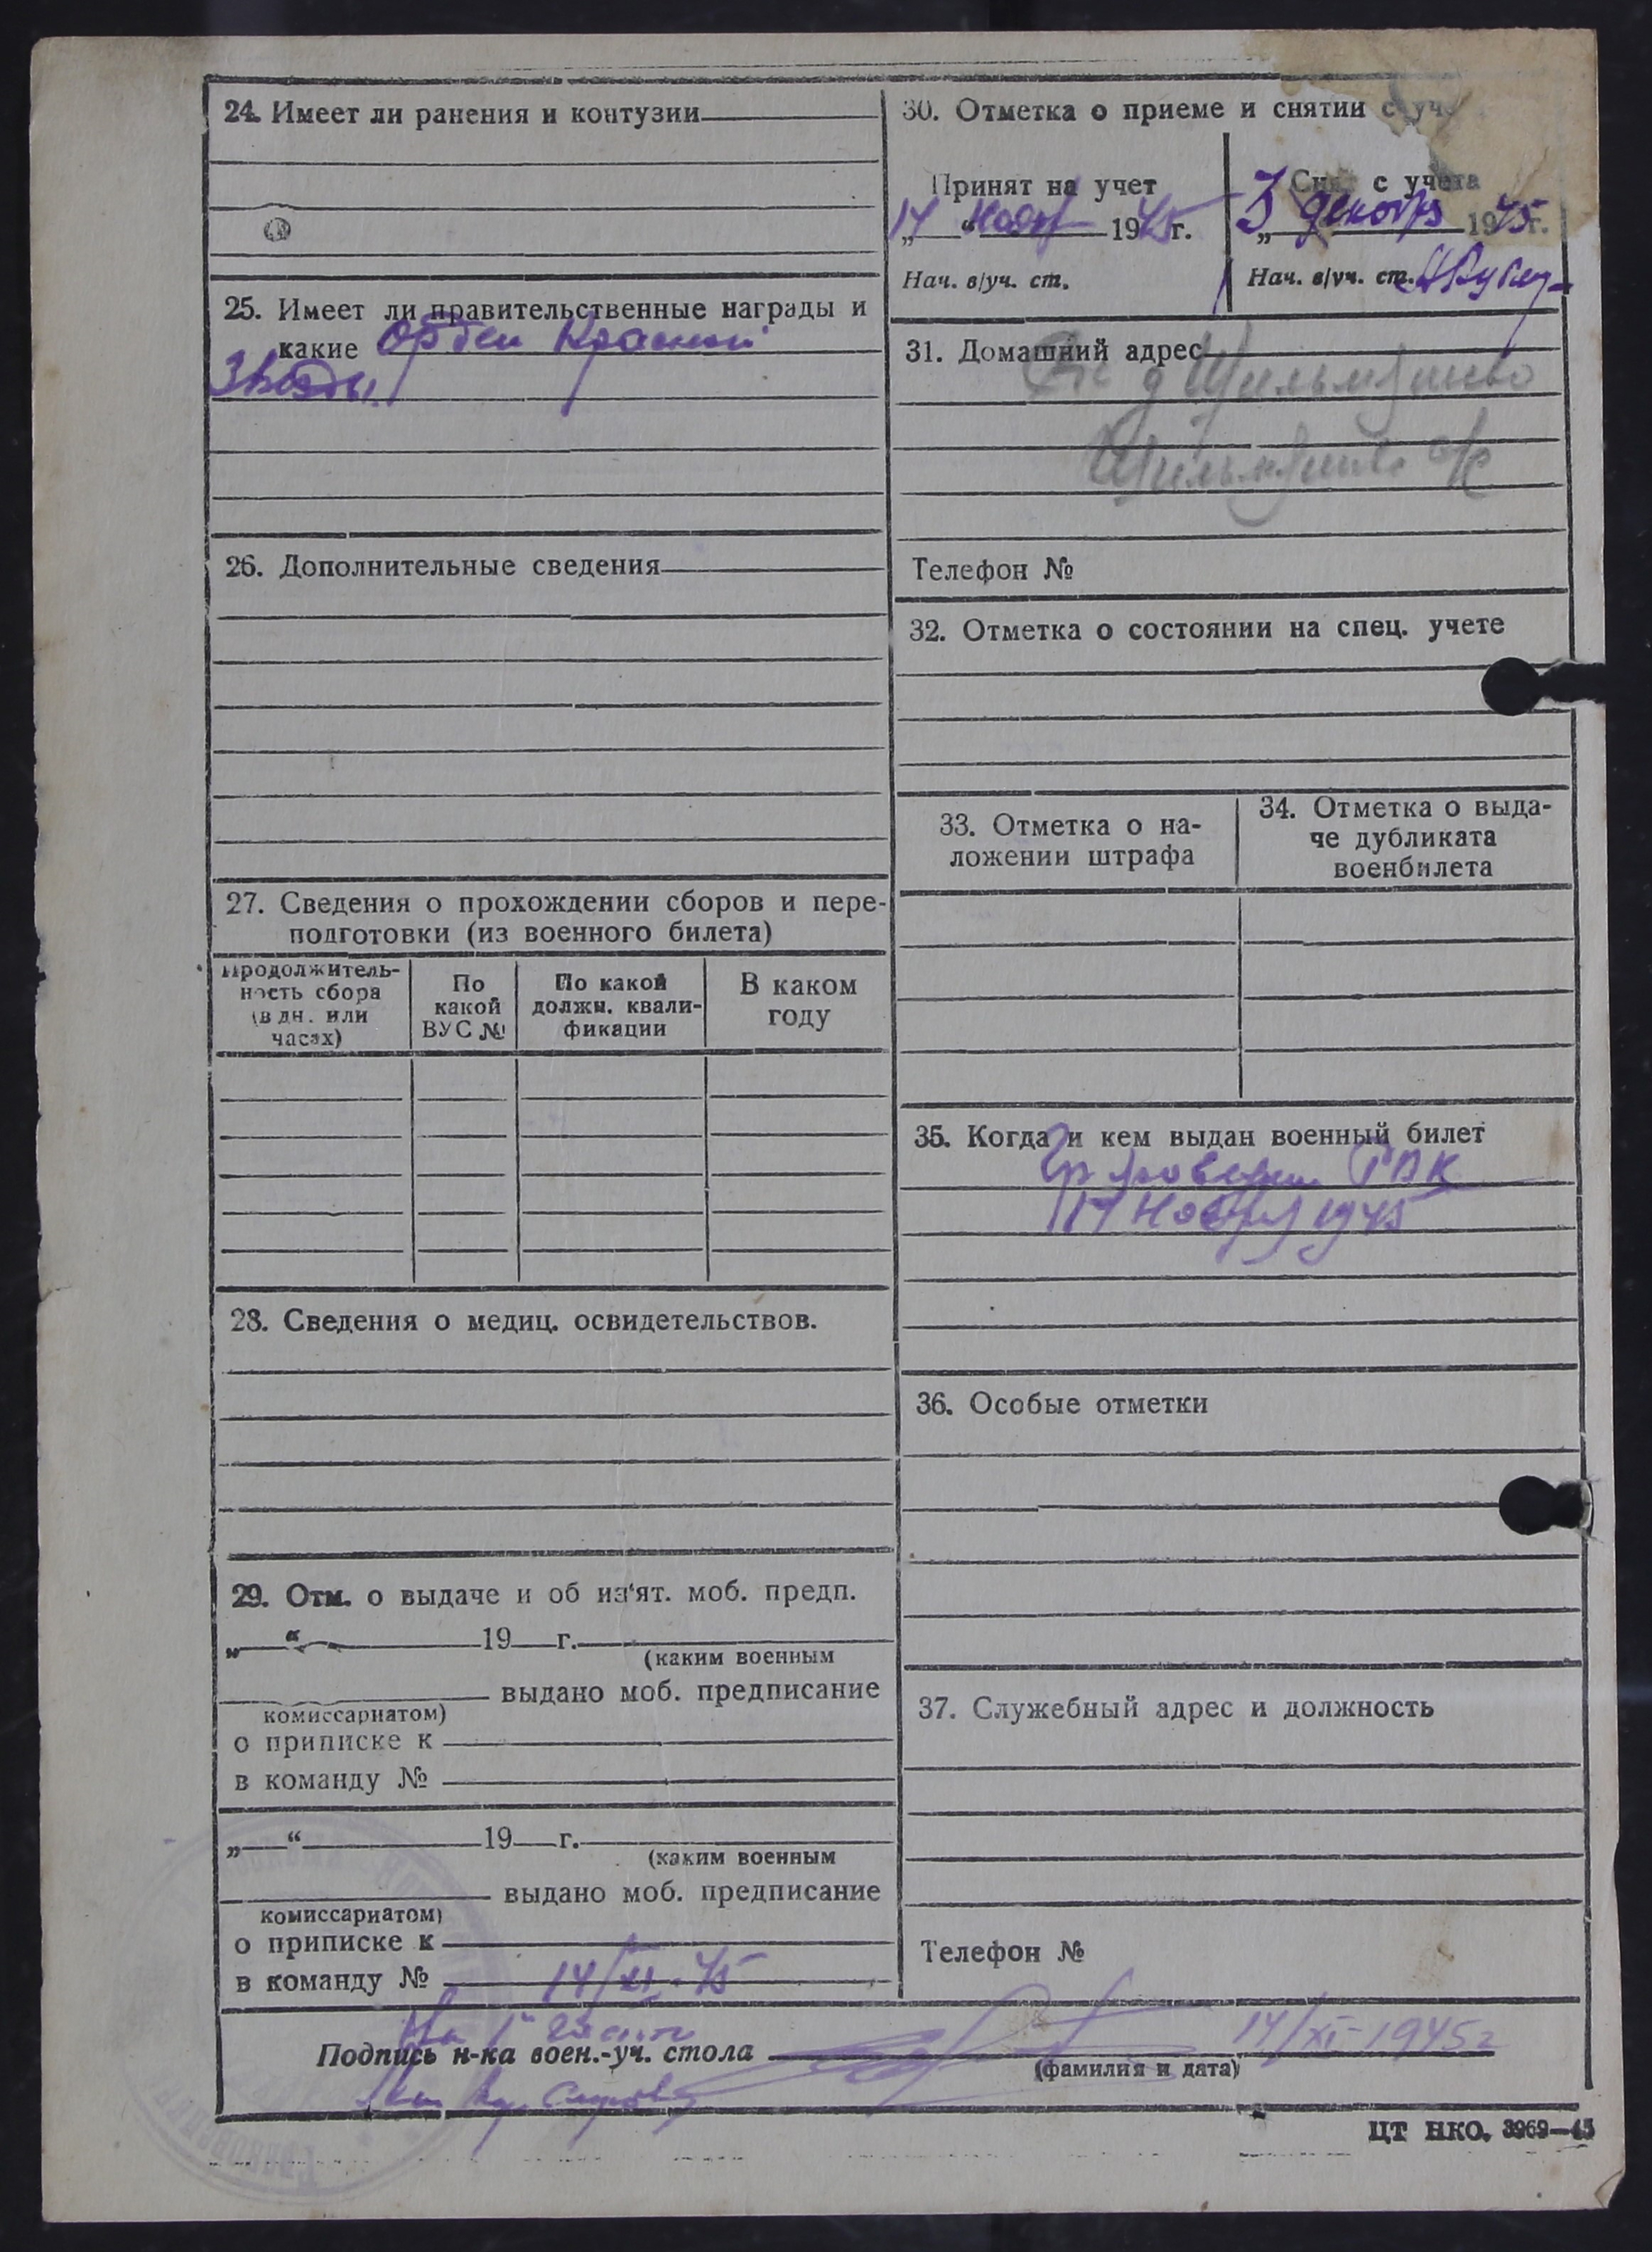 24. Имеет ли ранения и контузии
25. Имеет ли правительственные награды и
какие Орден Красной
Звезды.
26. Дополнительные сведения
27. Сведения о прохождении сборов и пере-
подготовки (из военного билета)
Продолжитель-
ность сбора
(в дн. или
часах)
По
какой
ВУС №
По какой
должн. квали-
фикации
В каком
году
28. Сведения о медиц. освидетельствов.
29. Отм. о выдаче и об из'ят. моб. предп.
„ “ 19 г.
(каким военным
выдано моб. предписание
комиссариатом)
о приписке к
в команду №
„ “ 19 г.
(каким военным
выдано моб. предписание
комиссариатом)
о приписке к
в команду № 14/XI-45
Подпись н-ка воен.-уч. стола 14/XI-1945г
(фамилия и дата)
30. Отметка о приеме и снятии с уч
Принят на учет
„14“ 1945 г.
Нач. в/уч. ст.
с учета
„3 декабря 1945 г.
Нач. в/уч. ст.
31. Домашний адрес
д
с/с
Телефон №
32. Отметка о состоянии на спец. учете
33. Отметка о на-
ложении штрафа
34. Отметка о выда-
че дубликата
военбилета
35. Когда и кем выдан военный билет
РВК
Ноября 1945
36. Особые отметки
37. Служебный адрес и должность
Телефон №
ЦТ НКО. 3969—45